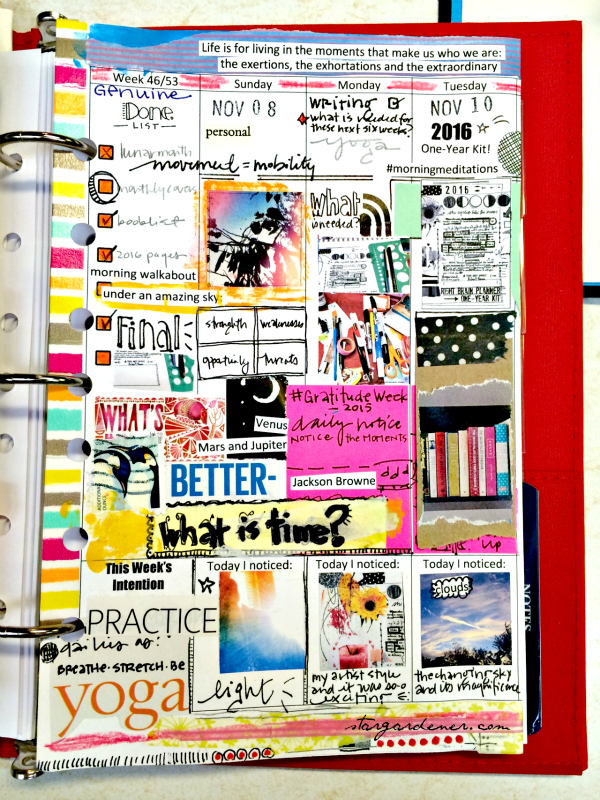 Life is for living in the moments that make us who we are:
the exertions, the exhortations and the extraordinary
Week 46/53
Sunday
Monday
Tuesday
Genuine
Done
LIST
NOV 08
personal
writing
what is needed for
these next six weeks?
yoga
NOV 10
2016
One-Year Kit!
#morningmeditations
lunar month
movement = mobility
monthly cards
booklist
2016 pages
morning walkabout
under an amazing sky
what
is needed?
2016
RIGHT BRAIN PLANNER
ONE-YEAR KIT
Final
strengths
weaknesses
opportunity
threats
WHAT'S
Venus
Mars and Jupiter
BETTER-
#Gratitude Week
2015
daily notice
NOTICE the MOMENTS
Jackson Browne
what is time?
This Week's
Intention
PRACTICE
BREATHE·STRETCH·BE
yoga
Today I noticed:
light
Today I noticed:
my artist style
and it was so-o
exciting
Today I noticed:
clouds
the changing sky
and its magnificence
NOTES
stargardener.com